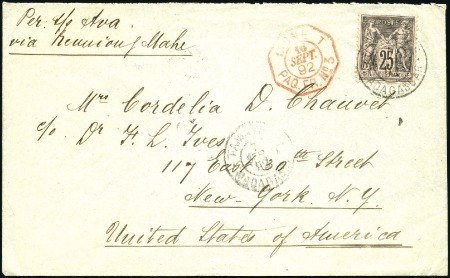 Per S/s Ava
via Reunion & Mahe
LIGNE T
16
SEPT.
92
PAQ. FR. No 5
25
MADAGASCAR
Mrs Cordelia D. Chauvet
c/o Dr F. L. Ives
117 East 30th Street
New-York. N.Y.
United States of America